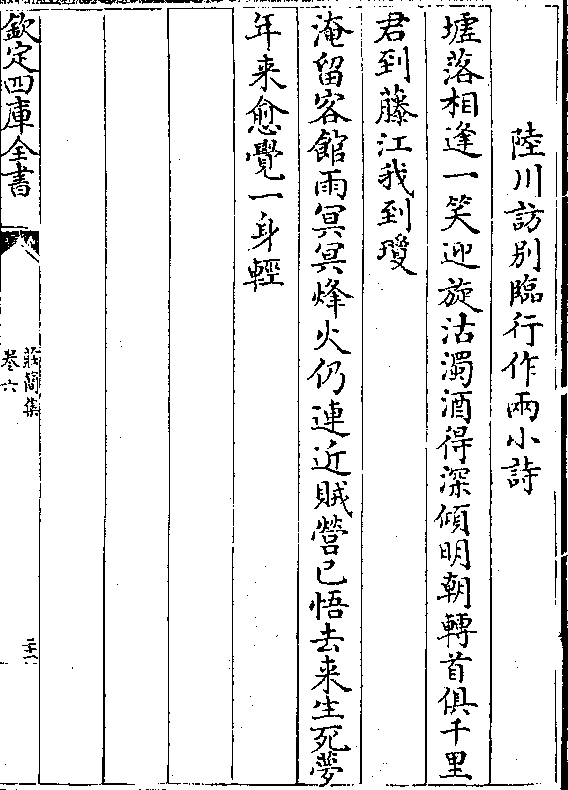 陸川訪别臨行作兩小詩
墟落相逢一笑迎旋沽濁酒得深傾明朝轉首俱千里
君到藤江我到瓊
淹留客館雨冥冥烽火仍連近賊營已悟去来生死夢
年来愈覺一身輕
欽定四庫全書
莊簡集
卷六
二十一